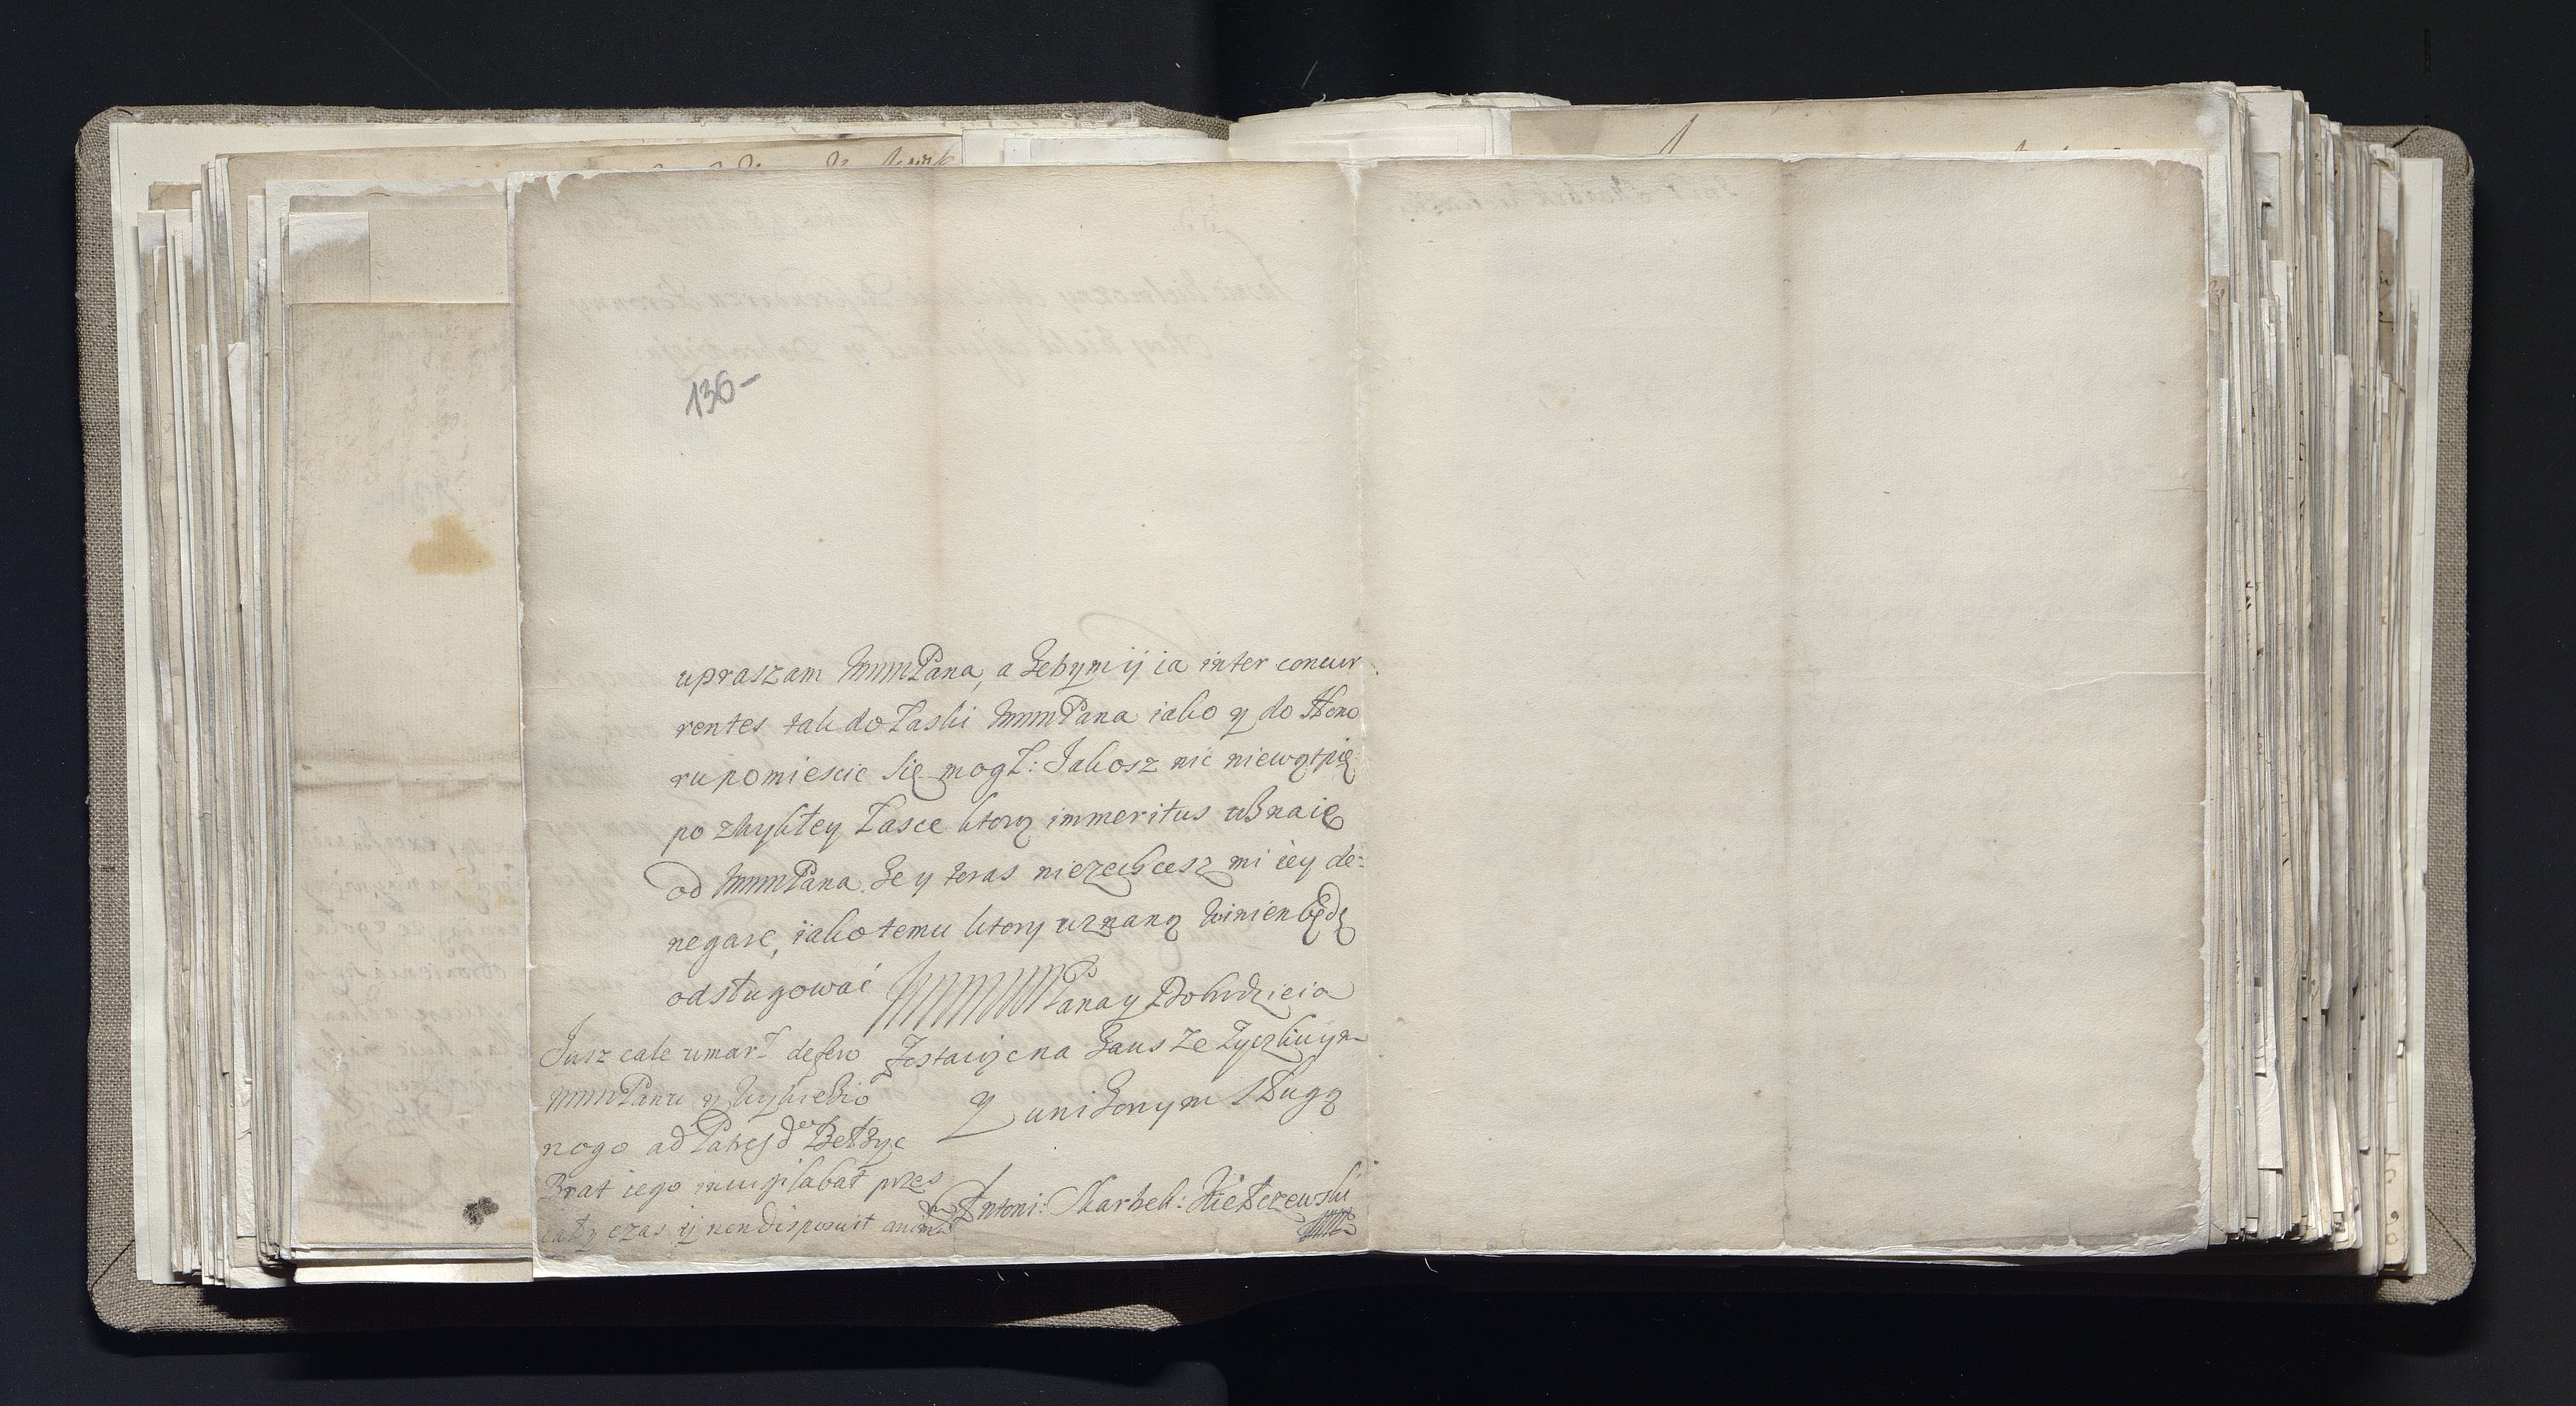 136-
upraszam WMMPana, a zebym ij ia inter concur
rentes tak do Łaski WMMPana iako y do Hono
ru pomiescic się mogł: Jakosz nic niewątpię
po zwykłey Łasce ktorą immeritus uznaię
od WMMPana. ze y teras niezechcesz mi iey de=
negare, iako temu ktory uznaną winien będę
odsługować WMMMPana y Dobrodzieia
Zostaiąc na zausze Zyczliuym
y unizonym Sługą
Antoni: Skarbek: Kiełczewski
Jusz cale umarł
WMMPanu y
nogo ad Bełzyc
Brat iego inuigilabat przes
cały czas ij non disposuit